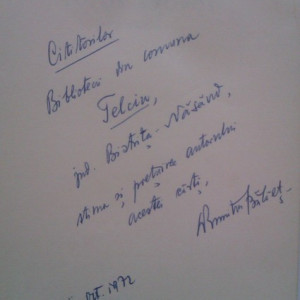 Cititorilor
Bibliotecii din comuna
Telciu,
jud. Bistrița-Năsăud,
stima și prețuirea autorului
acestei cărți,
Dumitru
1972